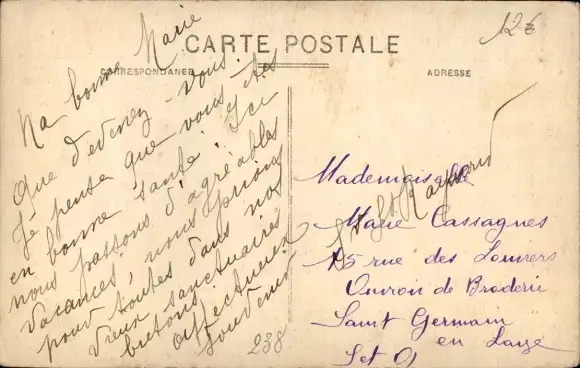 12€
CARTE POSTALE
CORRESPONDANCE
ADRESSE
Ma bonne Marie
Que devenez-vous?
Je pense que vous êtes
en bonne santé. Ici
nous passons d'agréables
vacances, nous prions
pour toutes dans nos
vieux sanctuaires
bretons.
Affectueux
souvenir
Mademoiselle
Marie Cassagnes
15 rue des Louviers
Ouvroir de Broderie
Saint Germain
en Laye
Set O
238